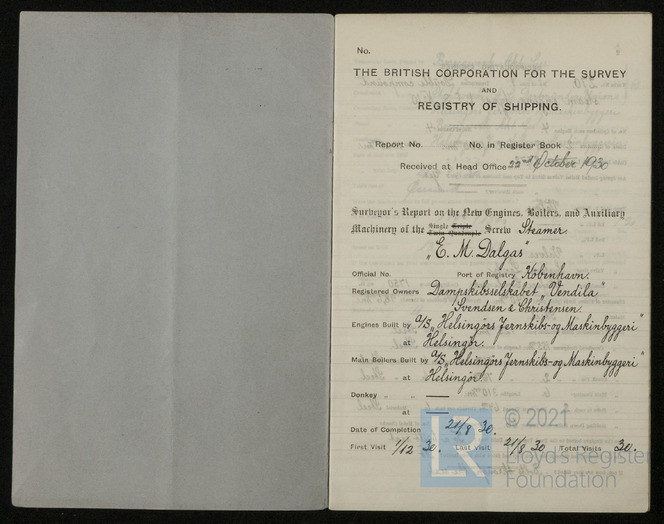 No.
THE BRITISH CORPORATION FOR THE SURVEY
AND
REGISTRY OF SHIPPING.
Report No. No. in Register Book
Received at Head Office 22nd October 1930
Surveyor's Report on the New Engines, Boilers, and Auxiliary
Machinery of the Single Triple Twin Quadruple Screw Steamer.
"E. M. Dalgas"
Official No. Port of Registry København.
Registered Owners Dampskibsselskabet "Vendila"
Svendsen & Christensen.
Engines Built by A/S "Helsingörs Jernskibs- og Maskinbyggeri"
at Helsingör.
Main Boilers Built by A/S "Helsingörs Jernskibs- og Maskinbyggeri"
at Helsingör.
Donkey " "
at
Date of Completion 21/8 30.
First Visit 30. Last Visit 21/8 30 Total Visits 30.
© 2021
LR
Lloyd's Register
Foundation